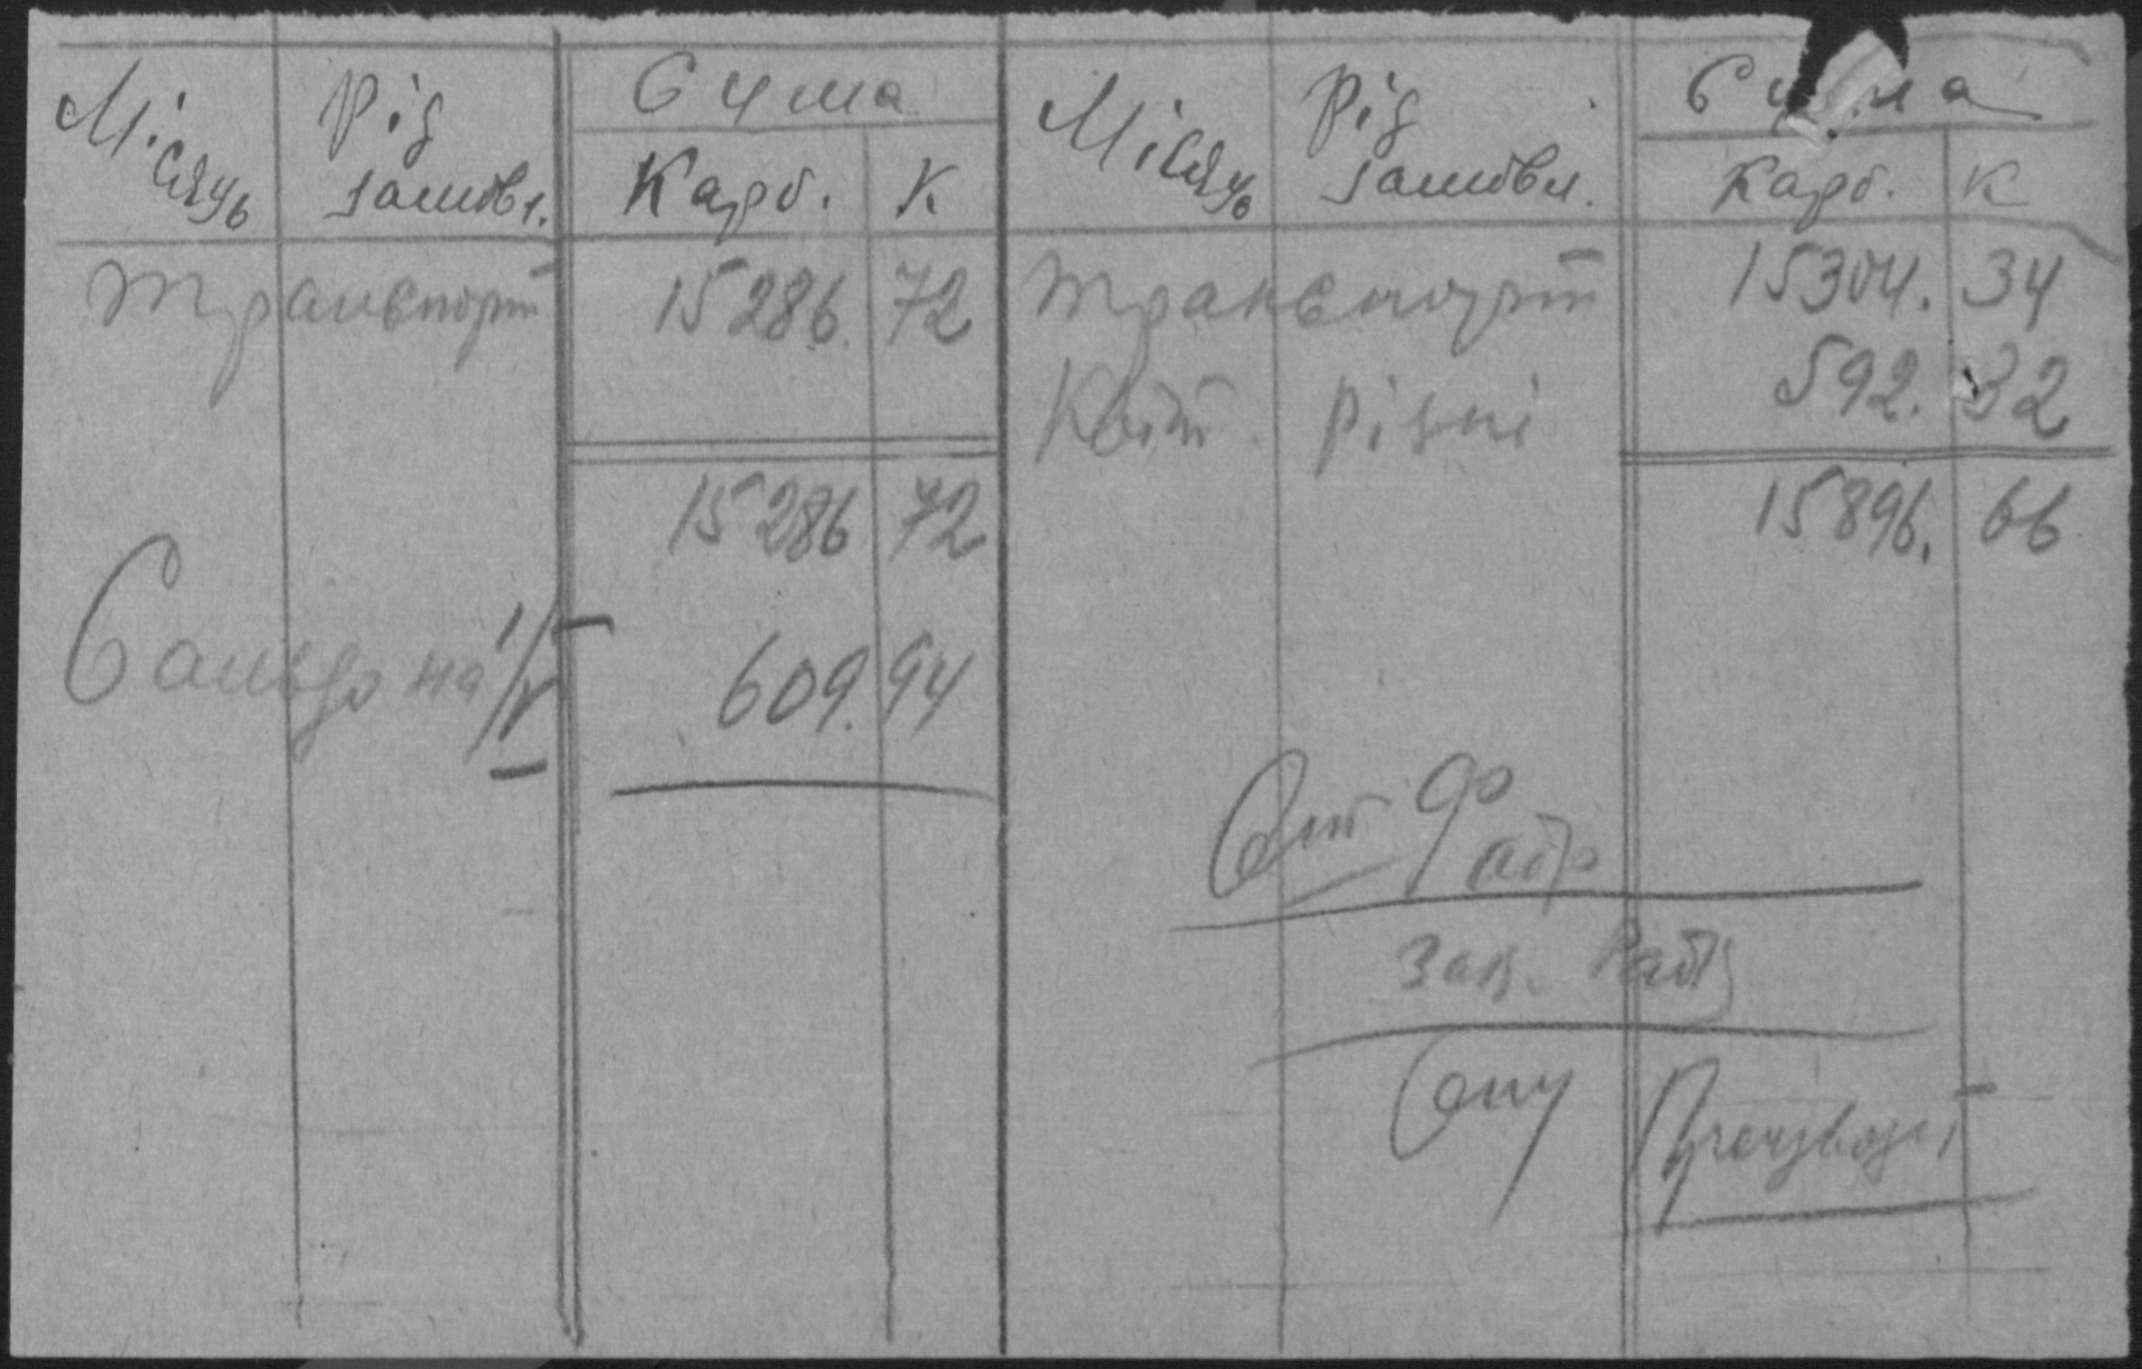 Місяць Рід замовл. Сума
Карб. К
Транспорт 15286. 72
15286 72
Сальдо на 1/V 609.94
Місяць Рід замовл. Сума
Карб. К
Транспорт 15304. 34
Квіт. Різні 592. 32
15896. 66